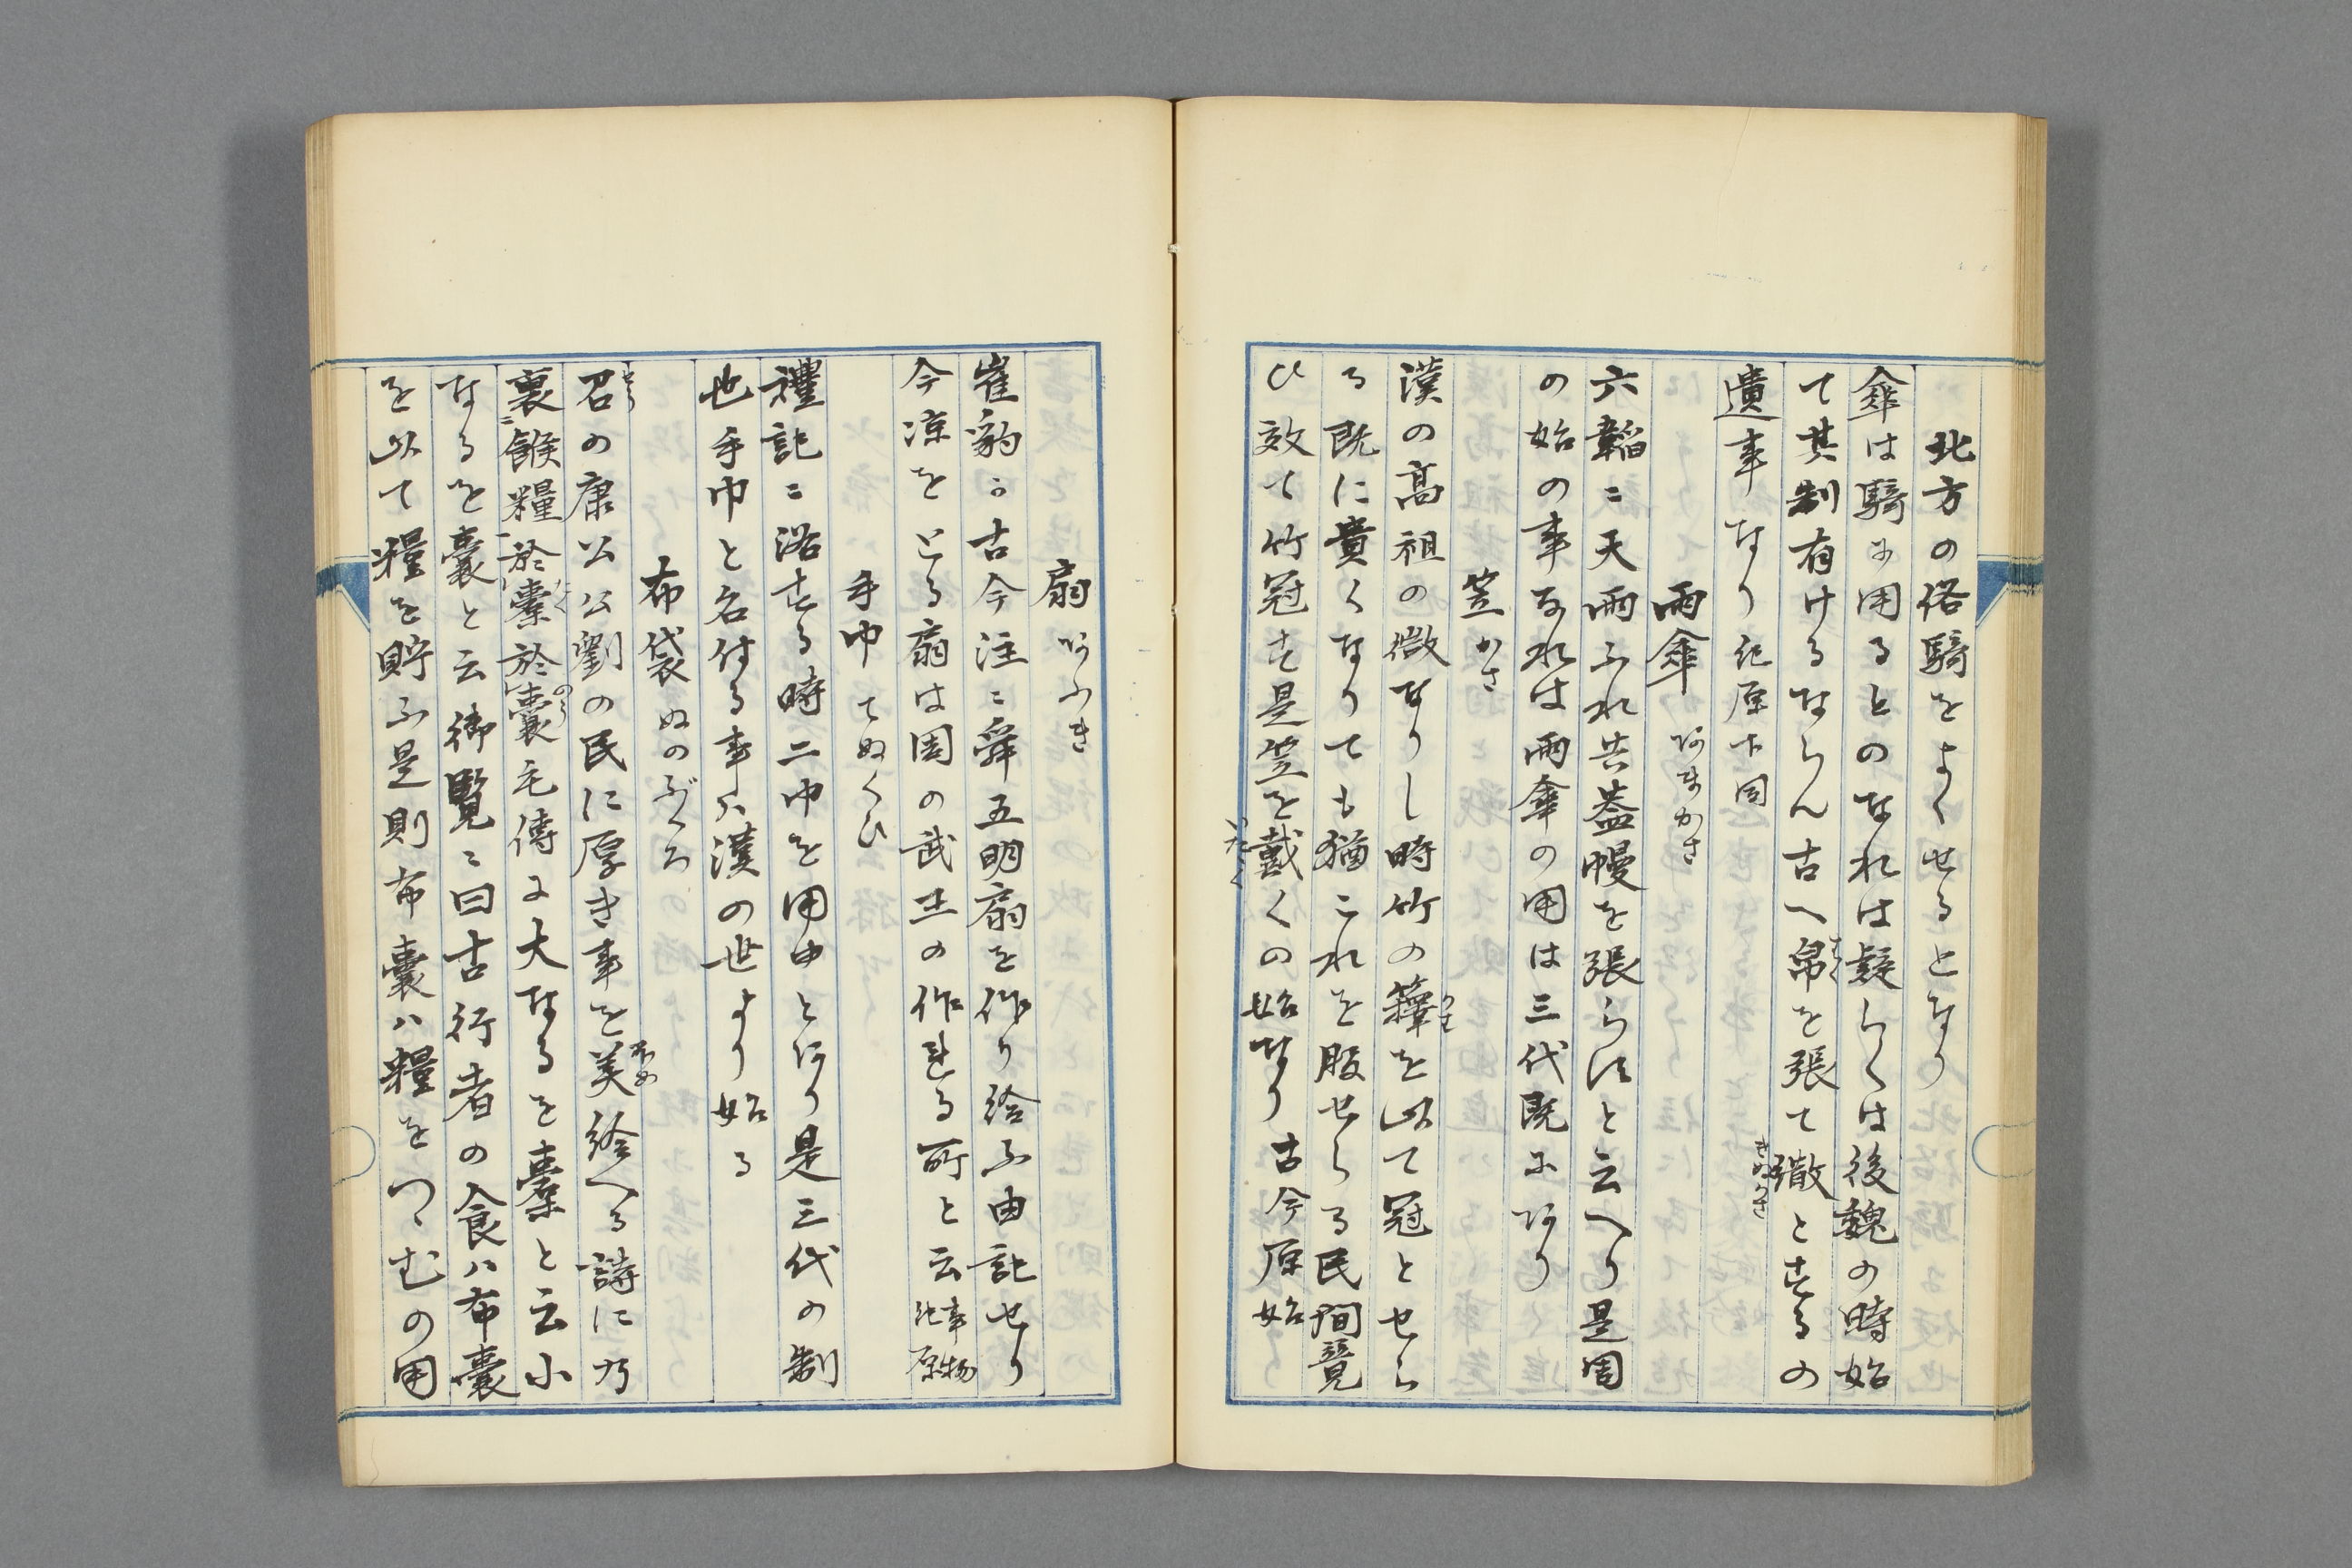 北方の俗騎をよくせるとなり
傘は騎に用るとのなれは疑らくは後魏の時始
て其制有けるならん古へ帛を張て繖とするの
遺事なり紀原下同
雨傘 あまかさ
六韜ニ天雨ふれ共蓋幔を張らすと云へり是周
の始の事なれは雨傘の用は三代既にあり
笠 かさ
漢の高祖の微なりし時竹の籜を以て冠とせら
る既に貴くなりても猶これを服せらる民間競
ひ效て竹冠す是笠を戴くの始なり古今原始
扇 あふき
崔豹か古今注ニ舜五明扇を作り給ふ由記せり
今涼をとる扇は周の武王の作れる所と云事物紀原
手巾 てぬくひ
禮記ニ浴する時二巾を用ゆとあり是三代の制
也手巾と名付る事ハ漢の世より始る
布袋 ぬのぶくろ
召の康公公劉の民に厚き事を美給へる詩に乃
裏餱糧於橐於囊毛傳に大なるを橐と云小
なるを囊と云御覽ニ曰古行者の食ハ布囊
を以て糧を貯ふ是則布囊ハ糧をつゝむの用